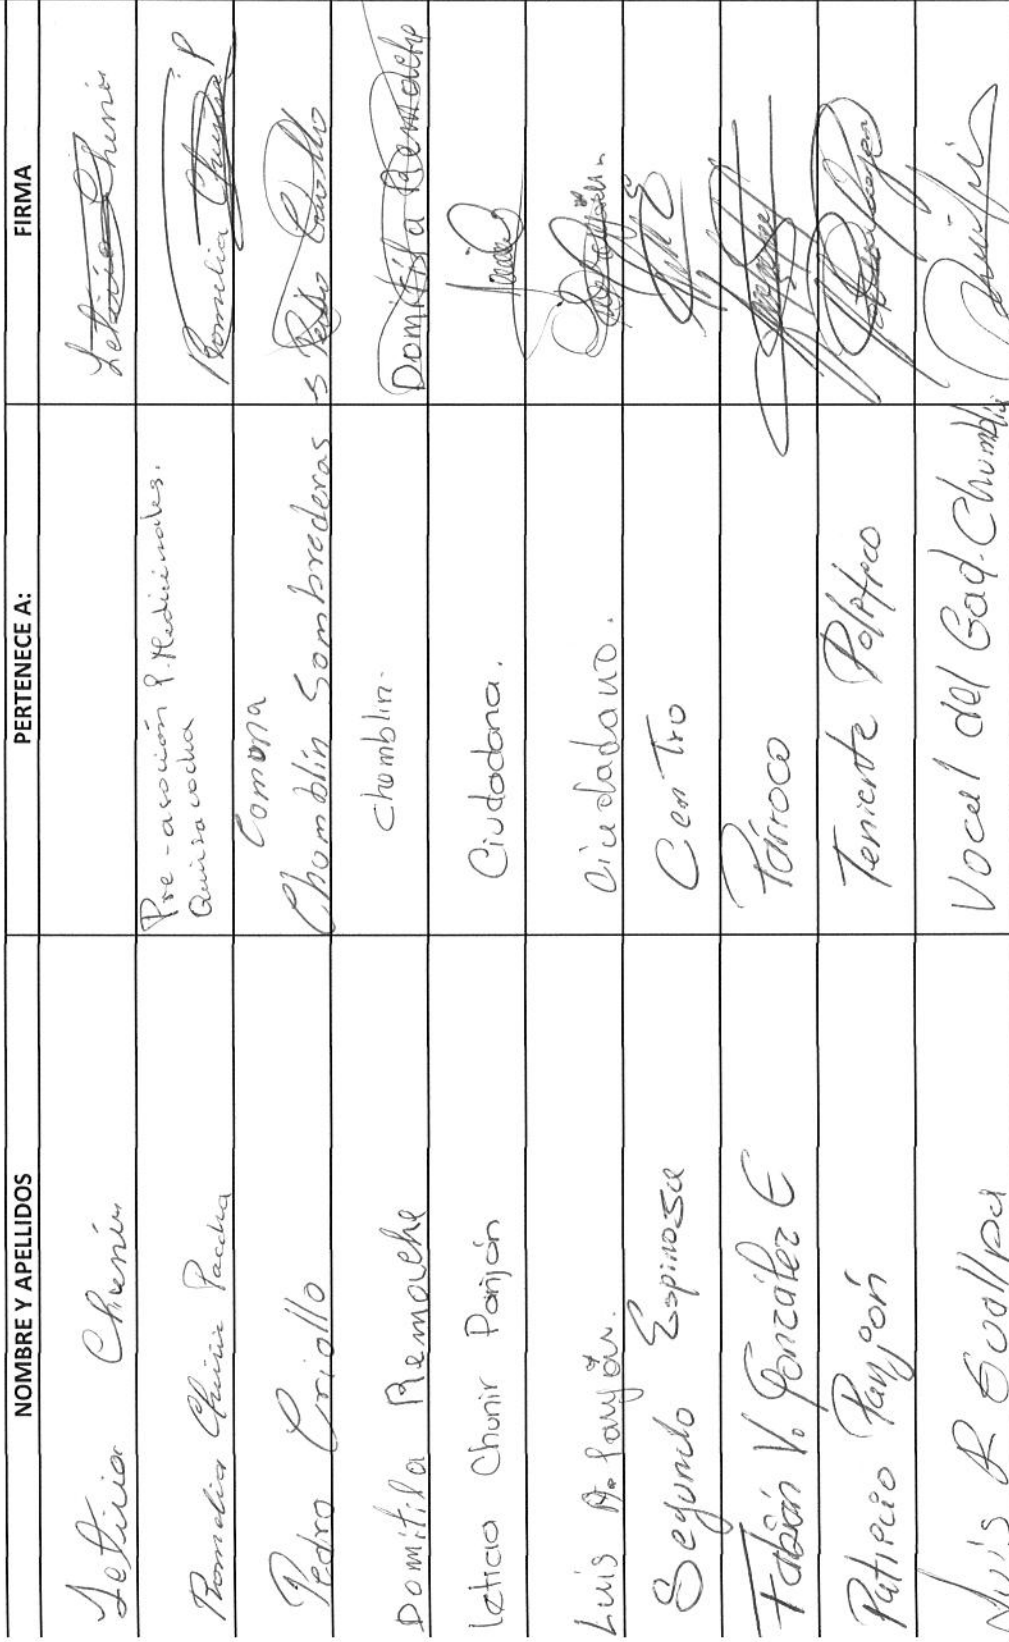 NOMBRE Y APELLIDOS PERTENECE A: FIRMA
Leticia Chunir Leticia Chunir
Romelia Chunir Paccha Pre-asoción P. Medicinales. Romelia Chunir P
Quinsacocha
Pedro Criollo Comona Pedro Criollo
Chumblín Sombrederas
Domitila Remache chumblin. Domitila Remache
Leticia Chunir Panjón Ciudadana.
Luis A. Panjón. Ciudadano.
Segundo Espinosa CenTro
Fabián V. González E Párroco
Patricio Panjón Teniente Político
Luis R Guallpa Vocal del Gad. Chumblin